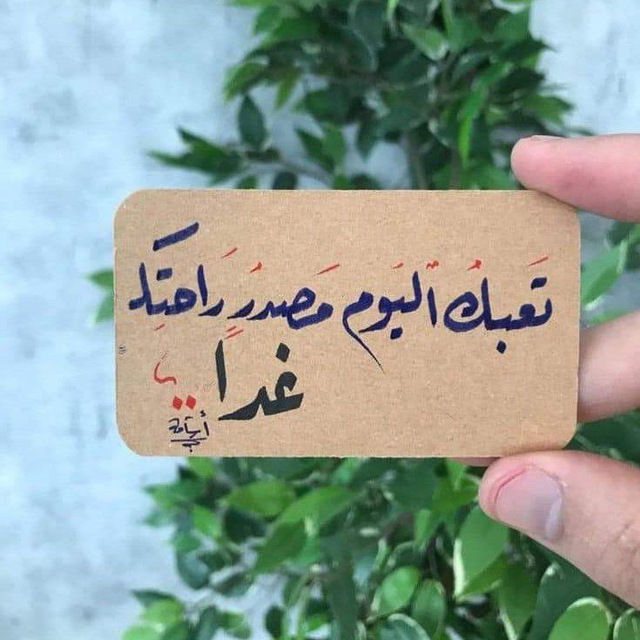 تَعبكُ اليَوم مَصدرُ رَاحتِكَ
غداً
أسامة